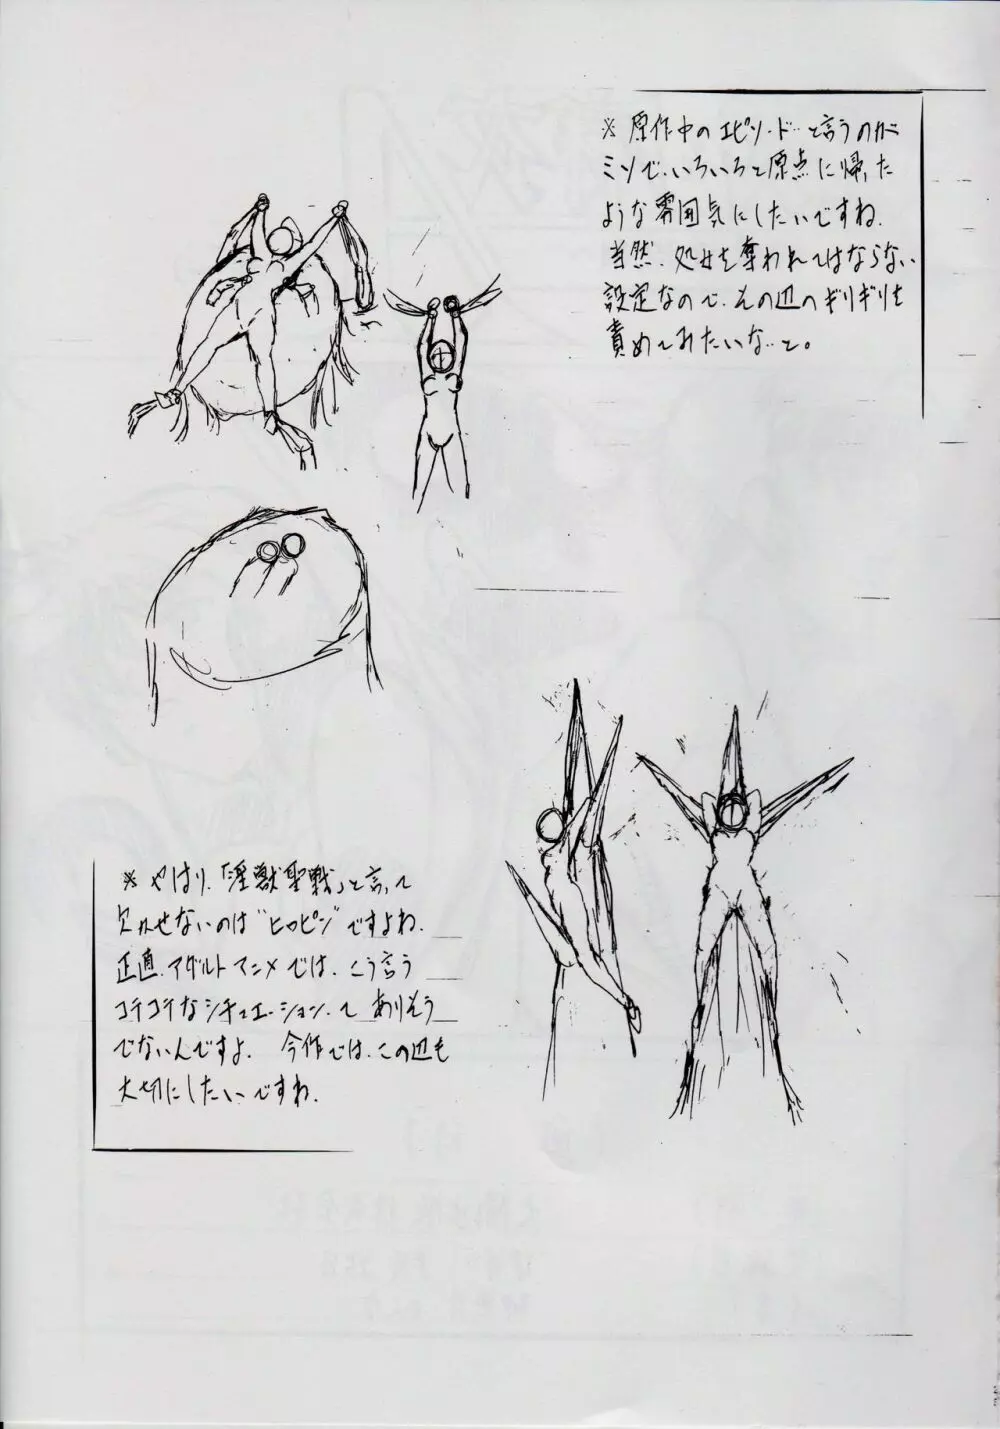 ※ 原作中のエピソードと言うのが
ミソで、いろいろと原点に帰った
ような雰囲気にしたいですね。
当然、処女を奪われてはならない
設定なので、その辺のギリギリを
責めてみたいな…と。
※ やはり、「淫獣聖戦」と言って
欠かせないのは“ヒロピン”ですよね。
正直、アダルトアニメでは、こう言う
コテコテなシチュエーションってありそう
でないんですよ。 今作では、この辺も
大切にしたいですね。